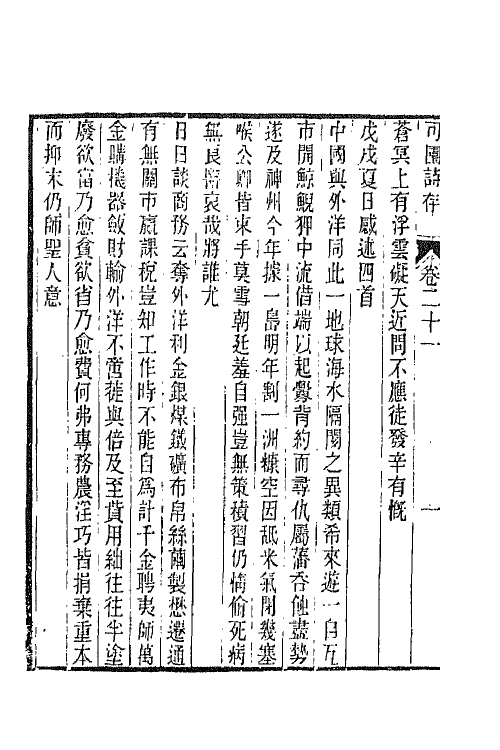 可園詩存
卷二十一
一
蒼冥上有浮雲礙天近問不應徒發辛有慨
戊戌夏日感述四首
中國與外洋同此一地球海水隔閡之異類希來遊一自互
市開鯨鯢狎中流借端以起釁背約而尋仇屬藩吞蝕盡勢
遂及神州今年據一島明年割一洲糠空因舐米氣閉幾塞
喉公卿皆束手莫雪朝廷羞自强豈無策積習仍惰偷死病
無良醫哀哉將誰尤
日日談商務云奪外洋利金銀煤鐵礦布帛絲繭製懋遷通
有無關市嬴課稅豈知工作時不能自為計千金聘夷師萬
金購機器斂財輸外洋不啻蓰與倍及至貲用絀往往半塗
廢欲富乃愈貧欲省乃愈費何弗專務農淫巧皆捐棄重本
而抑末仍師聖人意